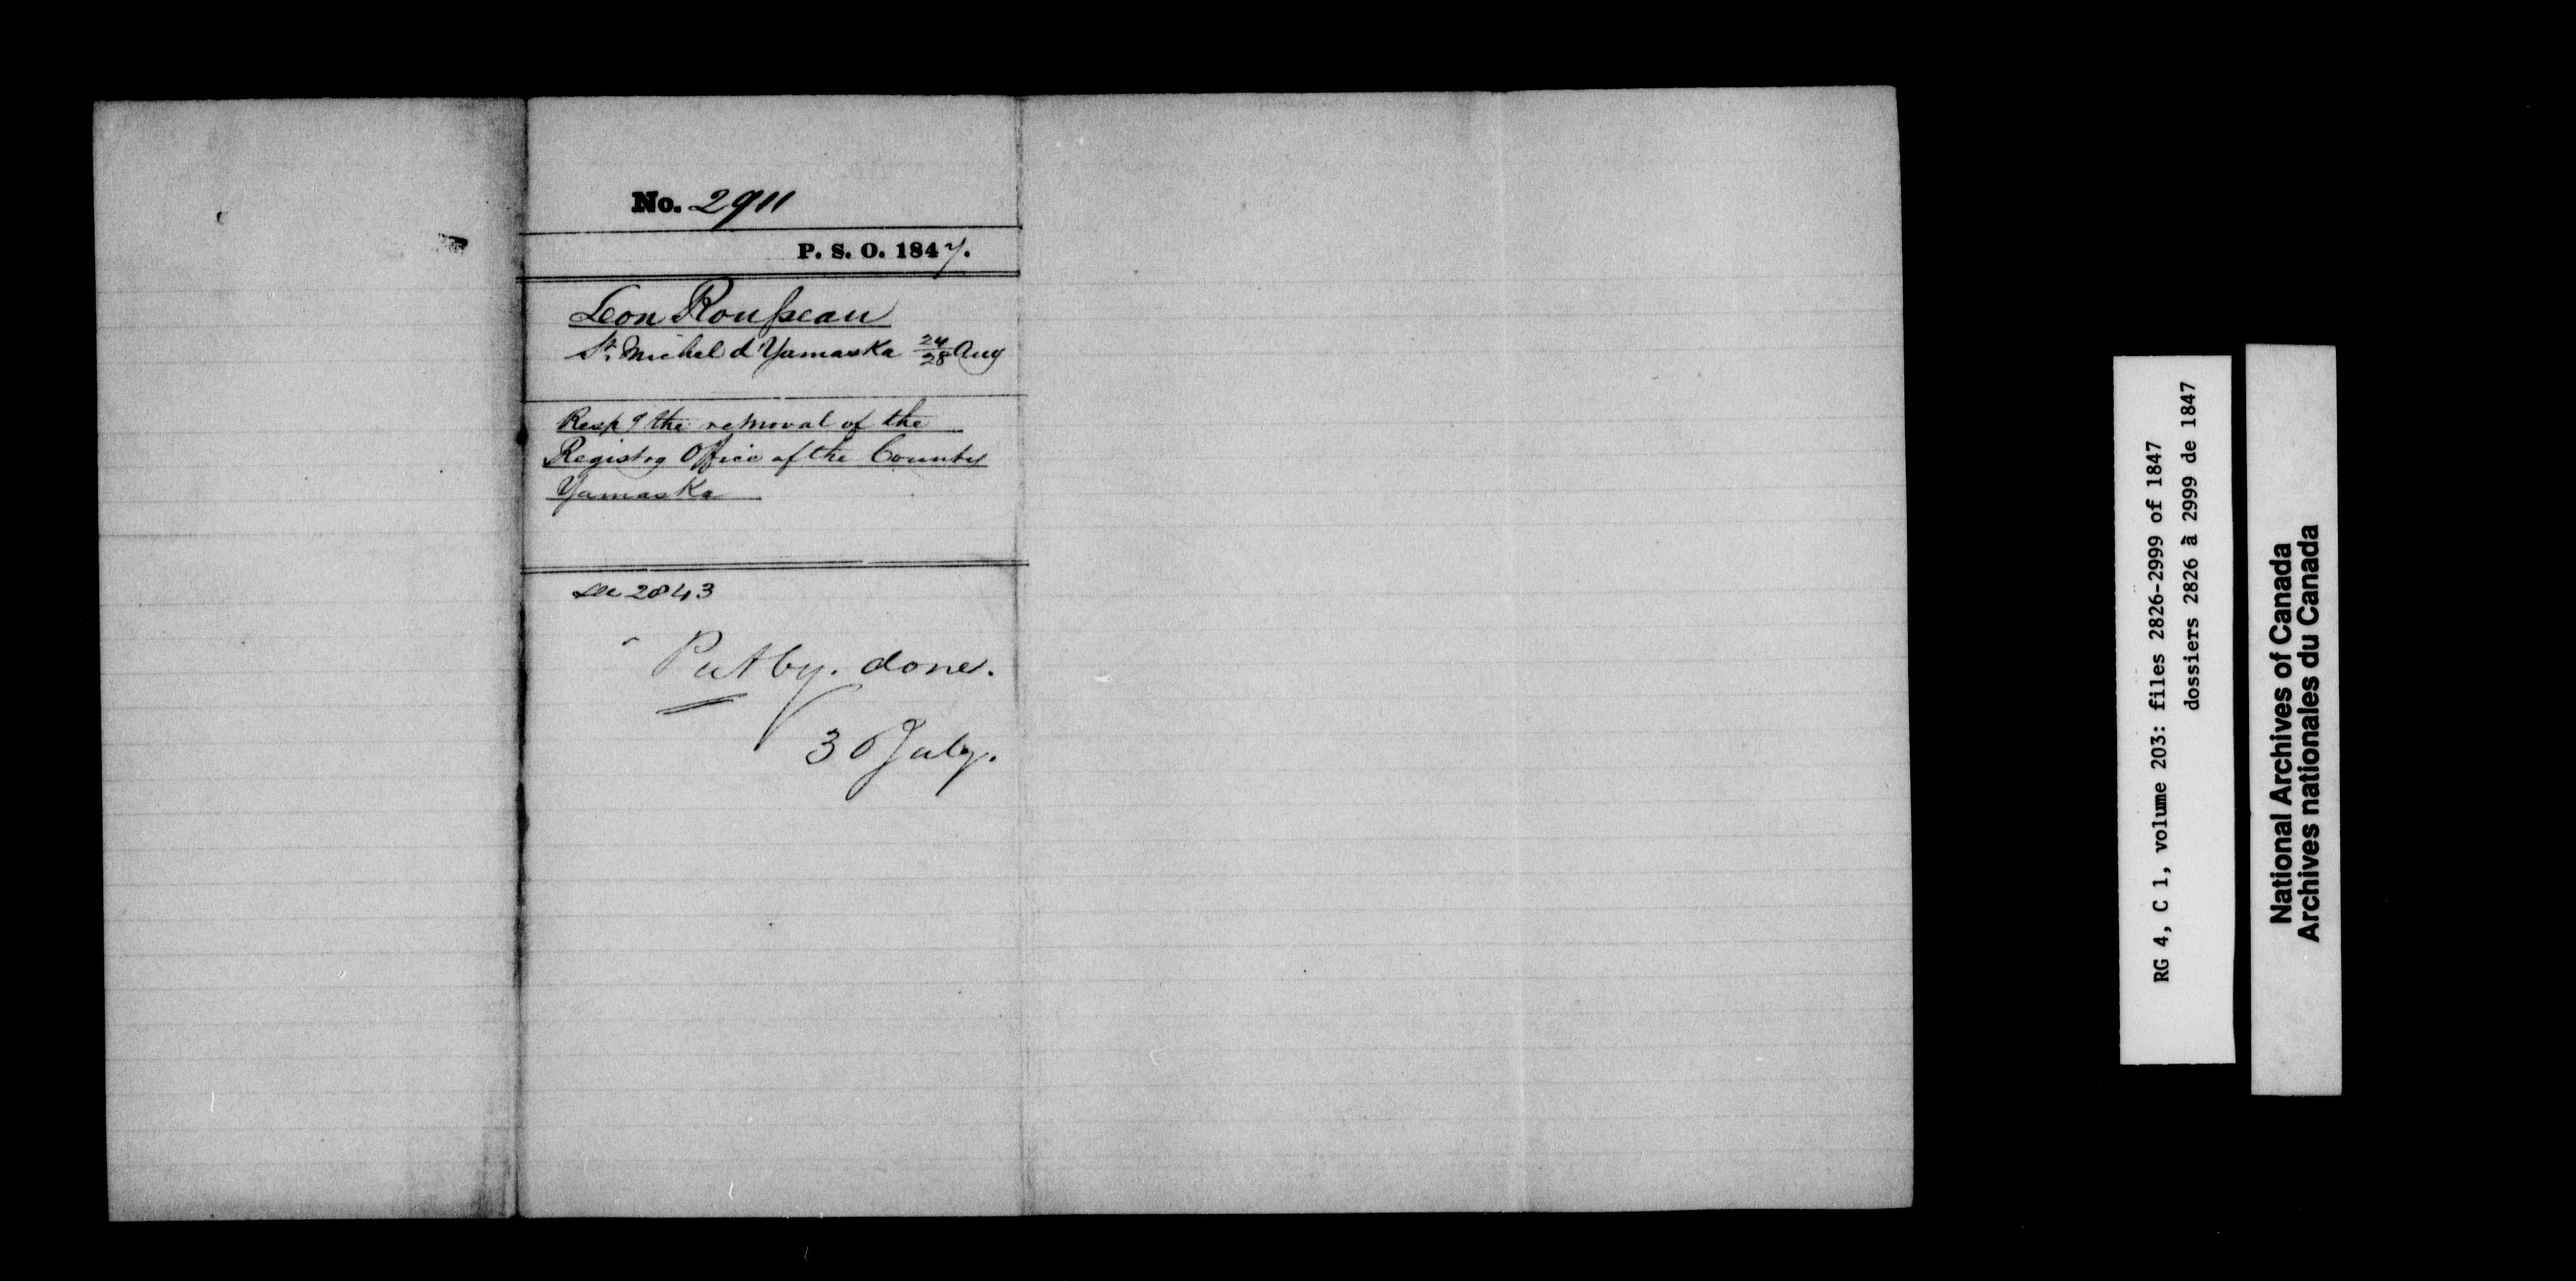 No. 2911
P. S. O. 1847.
Leon Rousseau
St. Michel d'Yamaska 24/28 Aug
Resp g the removal of the
Registry Office of the County
Yamaska
See 2843
Put by. done.
30 July.
RG 4, C 1, volume 203: files 2826-2999 of 1847
dossiers 2826 à 2999 de 1847
National Archives of Canada
Archives nationales du Canada